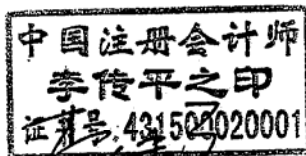 中国注册会计师
李传平之印
证书号:431500020001